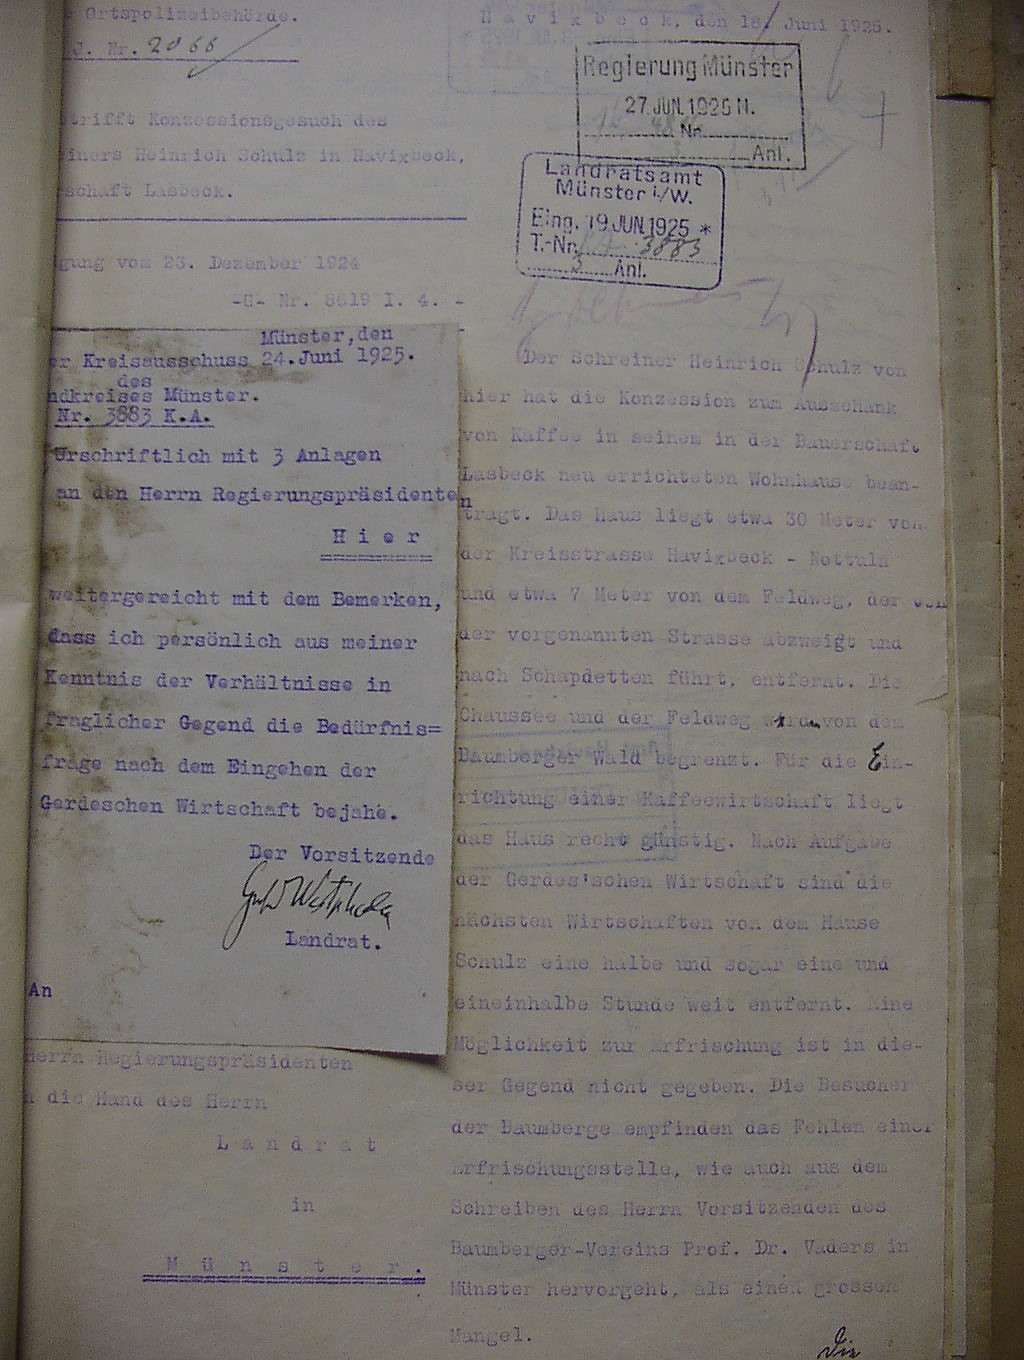 Ortspolizeibehörde.
J. Nr. 2066
Havixbeck, den 18. Juni 1925.
Regierung Münster
27. JUN. 1925 N.
Nr.
Anl.
Landratsamt
Münster i/W.
Eing. 19 JUN. 1925 *
T.-Nr. 3883
3 Anl.
trifft Konzessionsgesuch des
iners Heinrich Schulz in Havixbeck,
schaft Lasbeck.
gung vom 23. Dezember 1924
-C- Nr. 8619 I. 4. -
Münster, den
er Kreisausschuss 24. Juni 1925.
des
ndkreises Münster.
Nr. 3883 K.A.
Urschriftlich mit 3 Anlagen
an den Herrn Regierungspräsidenten
Hier
weitergereicht mit dem Bemerken,
dass ich persönlich aus meiner
Kenntnis der Verhältnisse in
fraglicher Gegend die Bedürfnis=
frage nach dem Eingehen der
Gerdeschen Wirtschaft bejahe.
Der Vorsitzende
Landrat.
An
Herrn Regierungspräsidenten
n die Hand des Herrn
Landrat
in
Münster.
Der Schreiner Heinrich Schulz von
hier hat die Konzession zum Ausschank
von Kaffee in seinem in der Bauerschaft
Lasbeck neu errichteten Wohnhause bean-
tragt. Das Haus liegt etwa 30 Meter von
der Kreisstrasse Havixbeck - Nottuln
und etwa 7 Meter von dem Feldweg, der von
der vorgenannten Strasse abzweigt und
nach Schapdetten führt, entfernt. Die
Chaussee und der Feldweg von dem
Baumberger Wald begrenzt. Für die Ein-
richtung einer Kaffeewirtschaft liegt
das Haus recht günstig. Nach Aufgabe
der Gerdes'schen Wirtschaft sind die
nächsten Wirtschaften von dem Hause
Schulz eine halbe und sogar eine und
eineinhalbe Stunde weit entfernt. Eine
Möglichkeit zur Erfrischung ist in die-
ser Gegend nicht gegeben. Die Besucher
der Baumberge empfinden das Fehlen einer
Erfrischungsstelle, wie auch aus dem
Schreiben des Herrn Vorsitzenden des
Baumberger-Vereins Prof. Dr. Vaders in
Münster hervorgeht, als einen grossen
Mangel.
Die